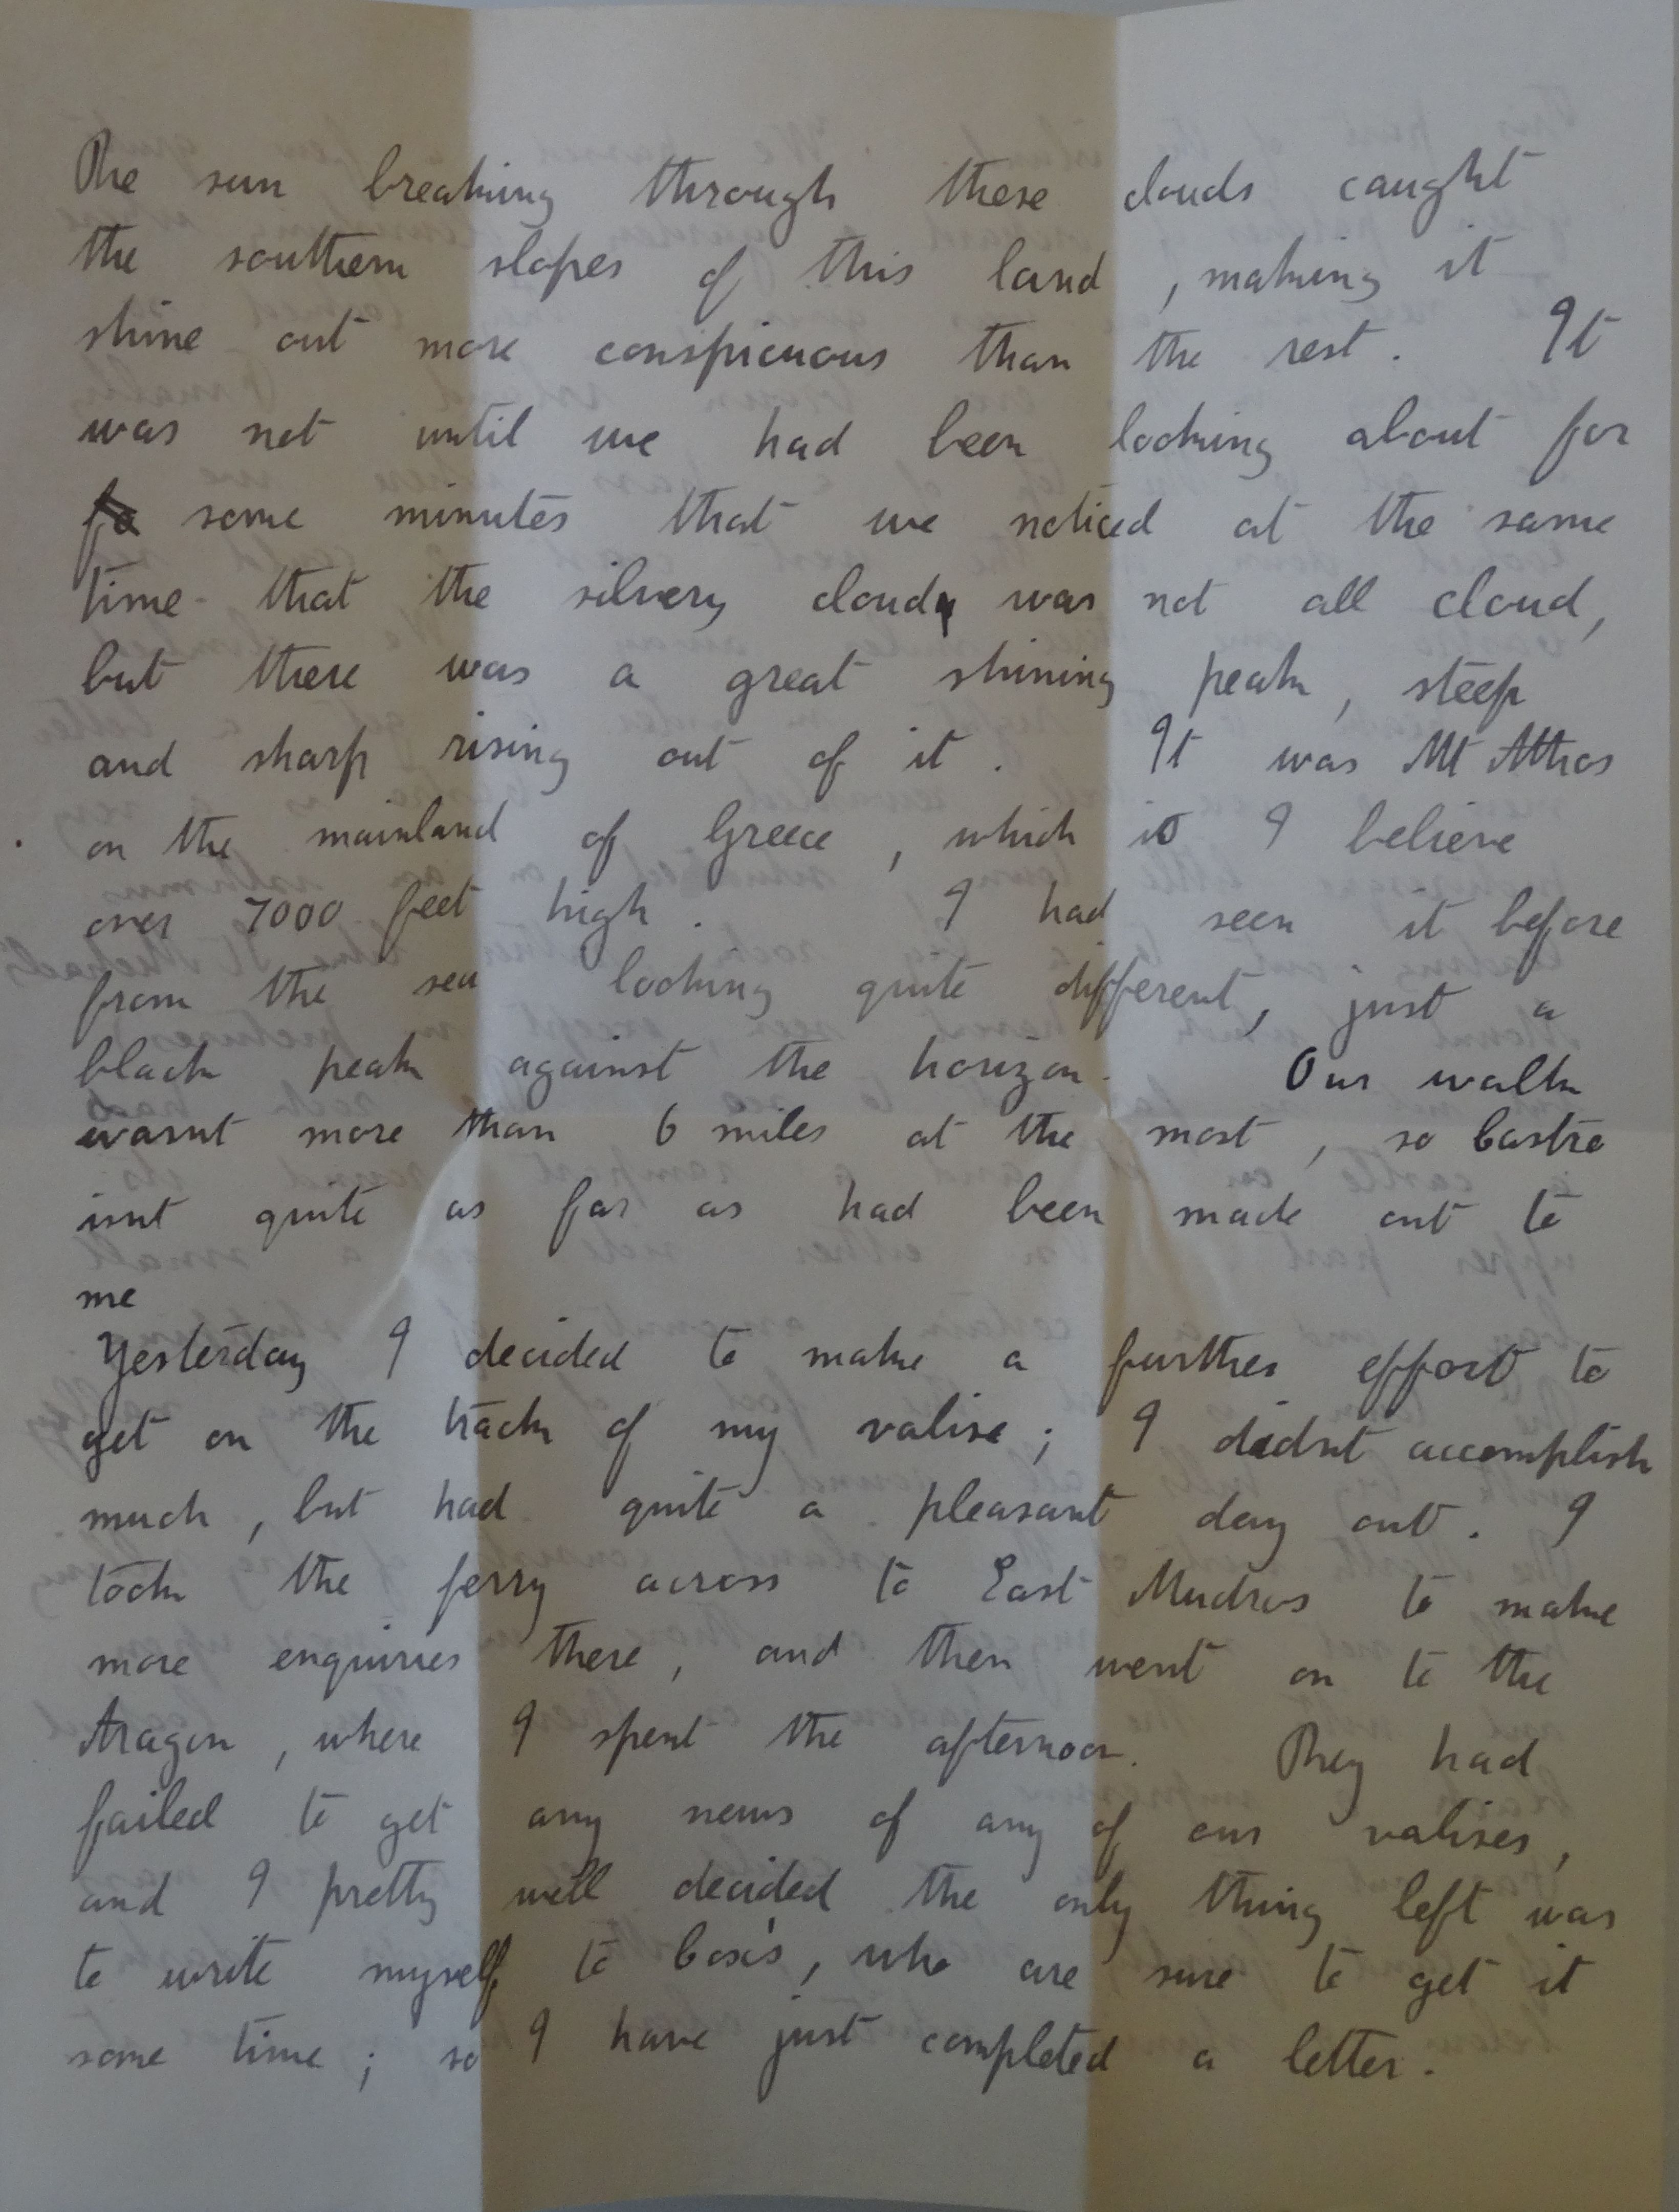 The sun breaking through these clouds caught
the southern slopes of this land , making it
shine out more conspicuous than the rest . It
was not until we had been looking about for
fo some minutes that we noticed at the same
time that the silvery cloud was not all cloud,
but there was a great shining peak , steep
and sharp rising out of it . It was Mt Athos
on the mainland of Greece , which is I believe
over 7000 feet high . I had seen it before
from the sea looking quite different, just a
black peak against the horizon. Our walk
wasnt more than 6 miles at the most , so Castro
isnt quite as far as had been made out to
me
Yesterday I decided to make a further effort to
get on the track of my valise ; I didnt accomplish
much , but had quite a pleasant day out . I
took the ferry across to East Mudros to make
more enquiries there , and then went on to the
Aragon , where I spent the afternoon. They had
failed to get any news of any of our valises ,
and I pretty well decided the only thing left was
to write myself to Cox's , who are sure to get it
some time ; so I have just completed a letter .